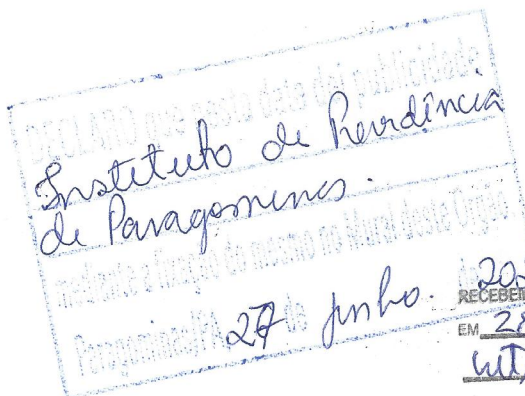 DECLARO que nesta data dei publicidade
Instituto de Previdência
de Paragominas.
mediante a fixação do mesmo no Mural deste Órgão
Paragominas/PA 27 de junho. de
RECEBE
EM 28